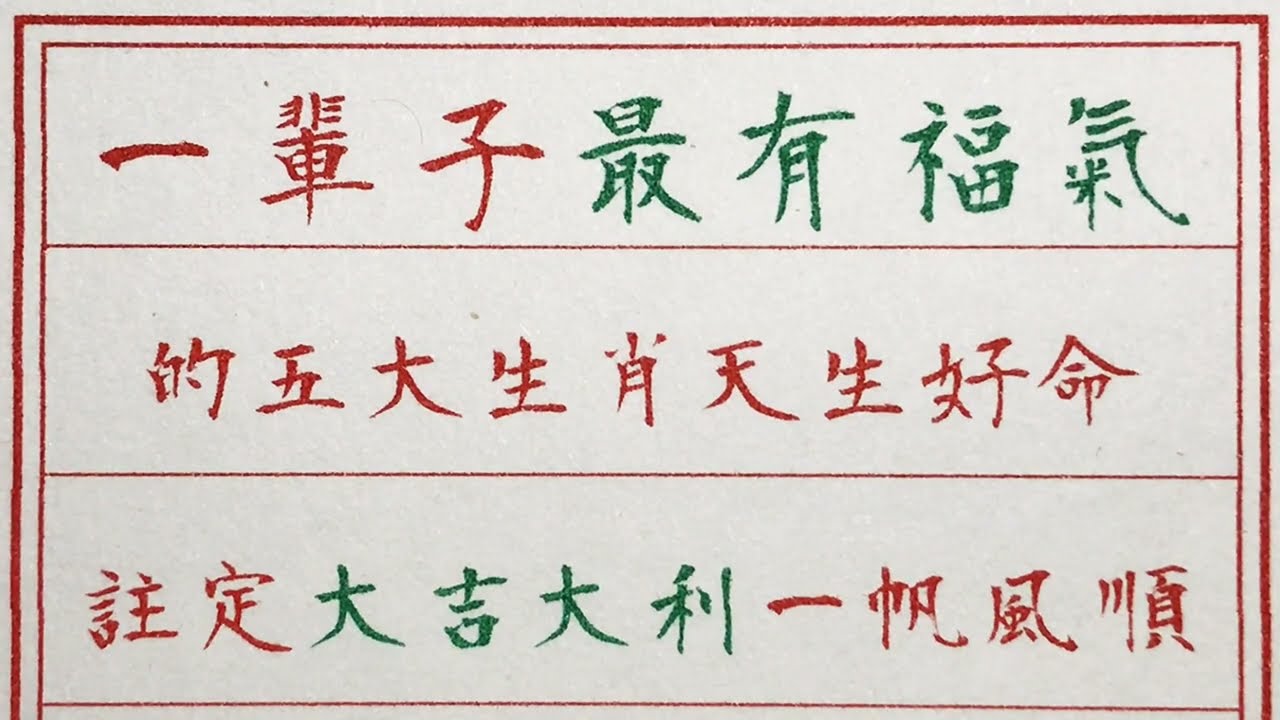 一輩子最有福氣
的五大生肖天生好命
註定大吉大利一帆風順